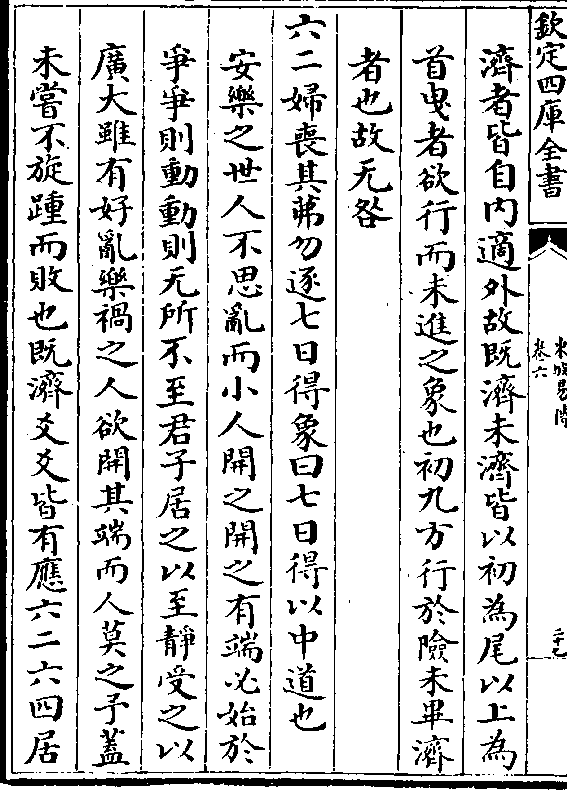 欽定四庫全書
卷六
濟者皆自内適外故既濟未濟皆以初為尾以上為
首曳者欲行而未進之象也初九方行於險未畢濟
者也故无咎
六二婦喪其茀勿逐七日得象曰七日得以中道也
安樂之世人不思亂而小人開之開之有端必始於
爭爭則動動則无所不至君子居之以至靜受之以
廣大雖有好亂樂禍之人欲開其端而人莫之予蓋
未嘗不旋踵而敗也既濟爻爻皆有應六二六四居